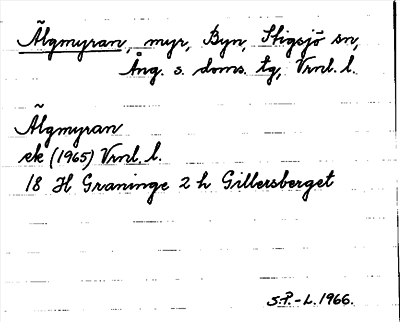 Älgmyran, myr, Byn, Stigsjö sn,
Ång. s. doms. tg, Vrnl. l.
Älgmyran
ek (1965) Vrnl. l.
18 H Graninge 2 h Gillersberget
S.P.-L. 1966.